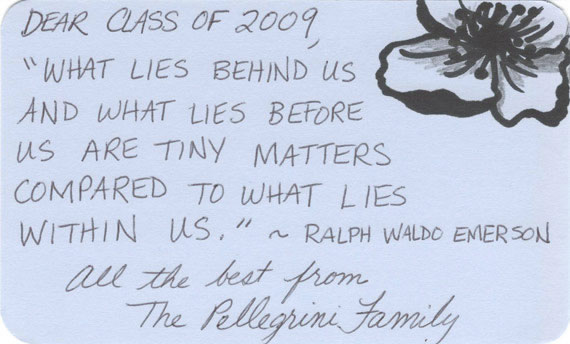 DEAR CLASS OF 2009,
"WHAT LIES BEHIND US
AND WHAT LIES BEFORE
US ARE TINY MATTERS
COMPARED TO WHAT LIES
WITHIN US." ~ RALPH WALDO EMERSON
All the best from
The Pellegrini Family